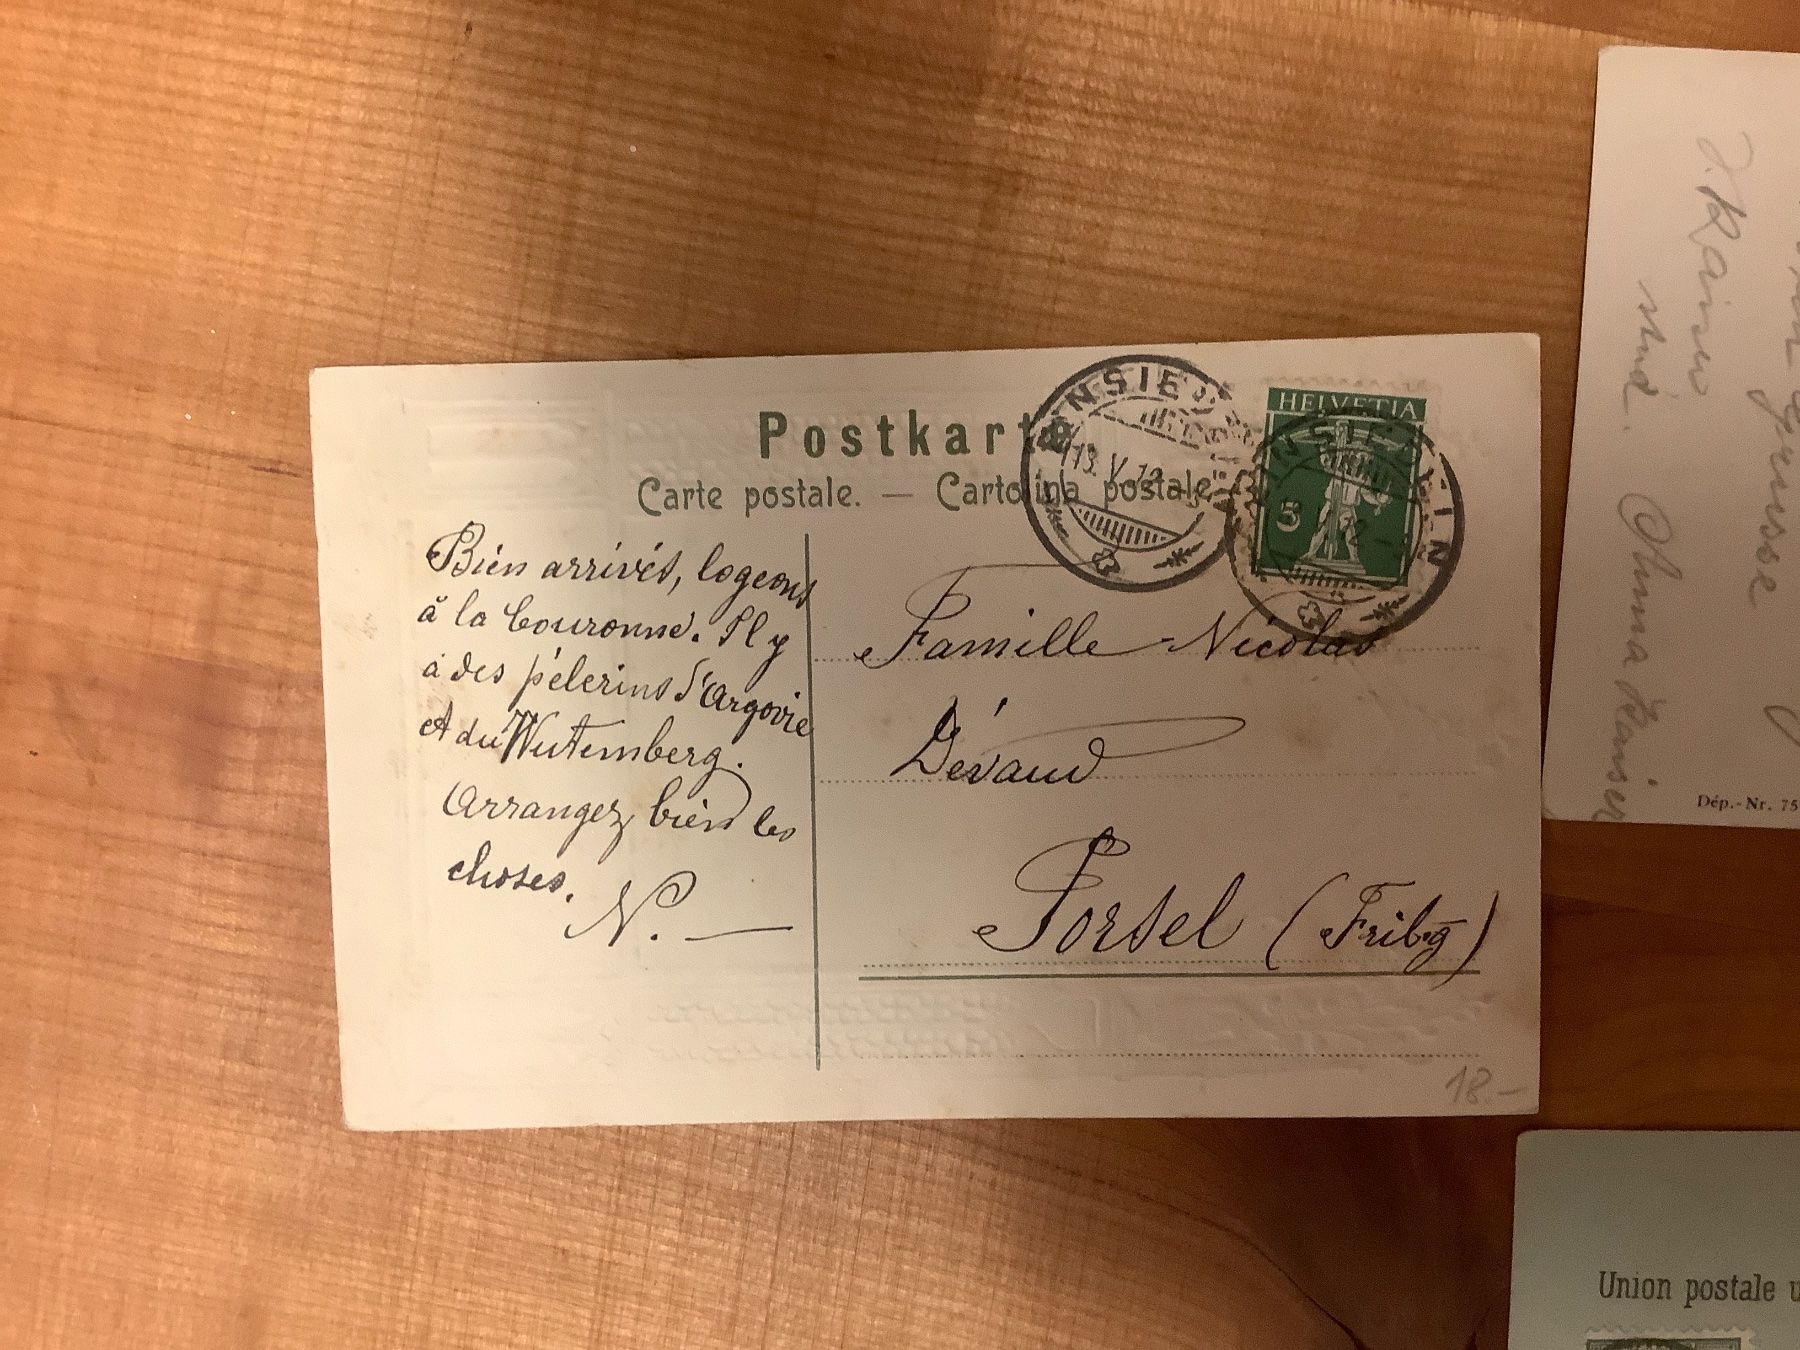 Postkarte
Carte postale. — Cartolina postale.
EINSIEDELN
13. V. 12
HELVETIA
5
EINSIEDELN
Bien arrivés, logeons
à la Couronne. Il y
a des pèlerins d'Argovie
et du Wutemberg.
Arrangez bien les
choses.
N. —
Famille Nicolas
Dévaud
Porsel (Fribg)
18.-
Anna
Dép.-Nr. 75
Union postale u